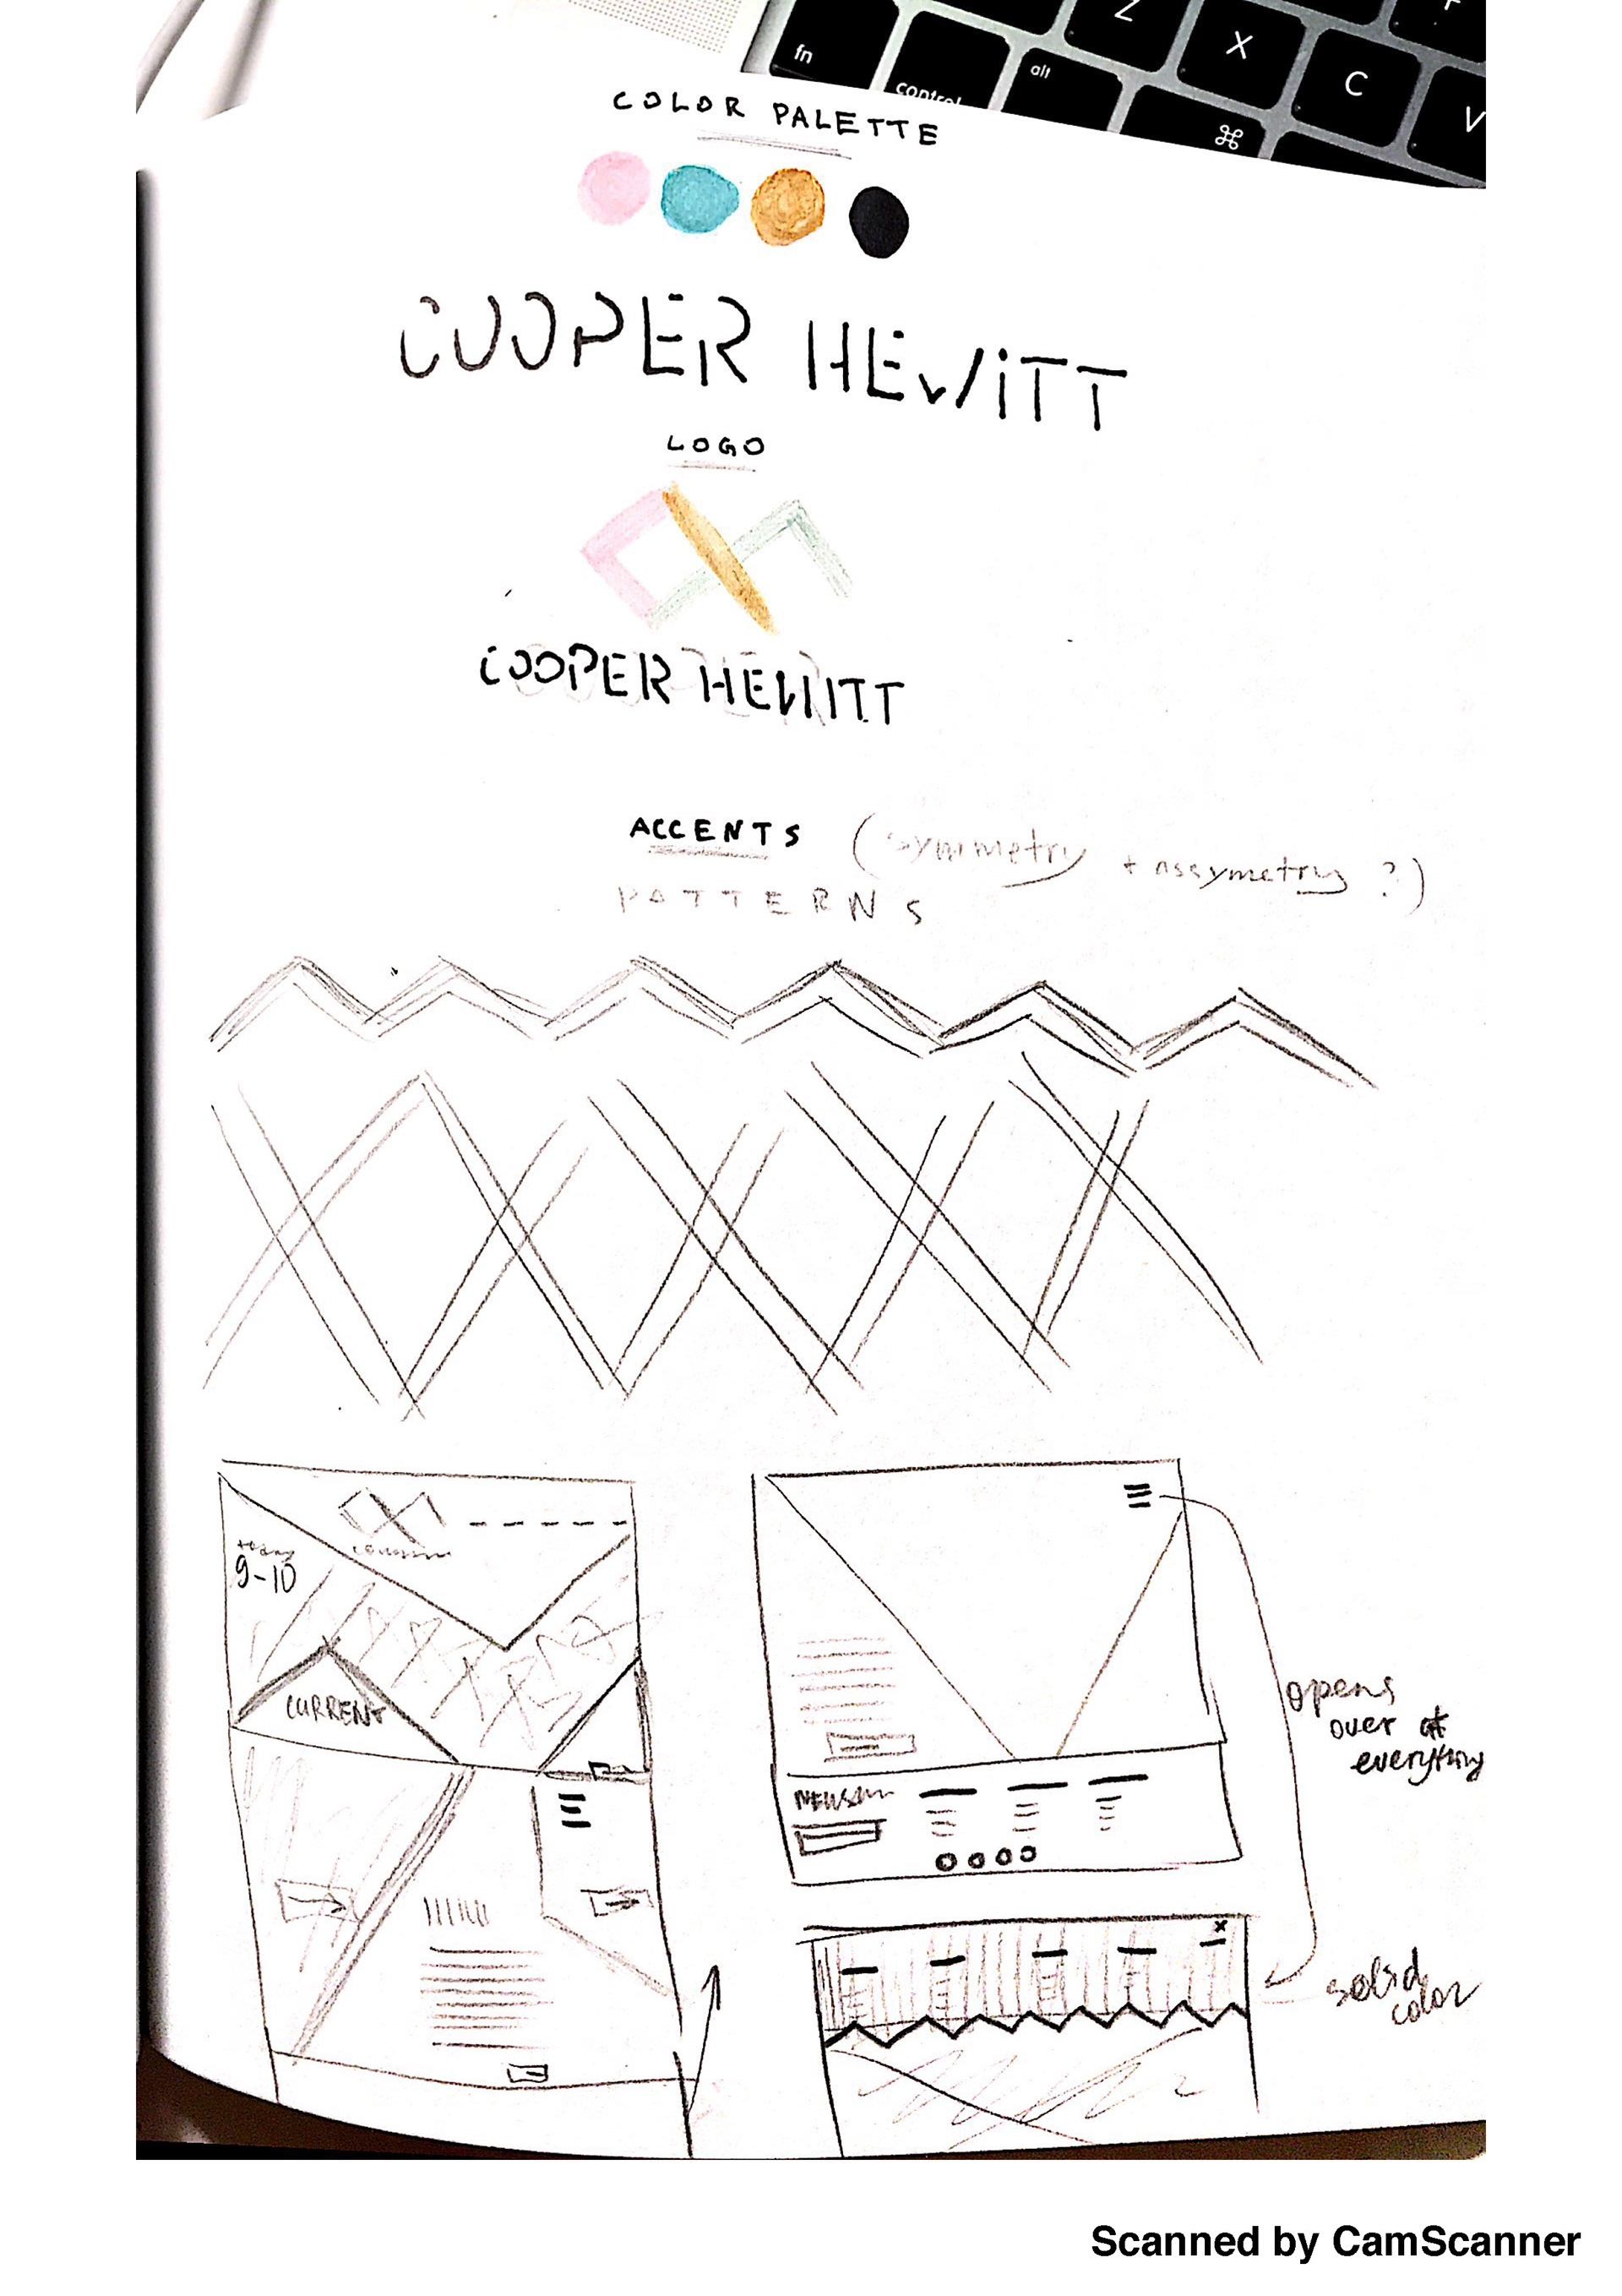 Z
X
C
V
F
fn
control
alt
⌘
COLOR PALETTE
COOPER HEWITT
LOGO
COOPER HEWITT
ACCENTS (symmetry + assymetry ?)
PATTERNS
today
9-10
CURRENT
opens
over
everything
solid
color
x
Scanned by CamScanner